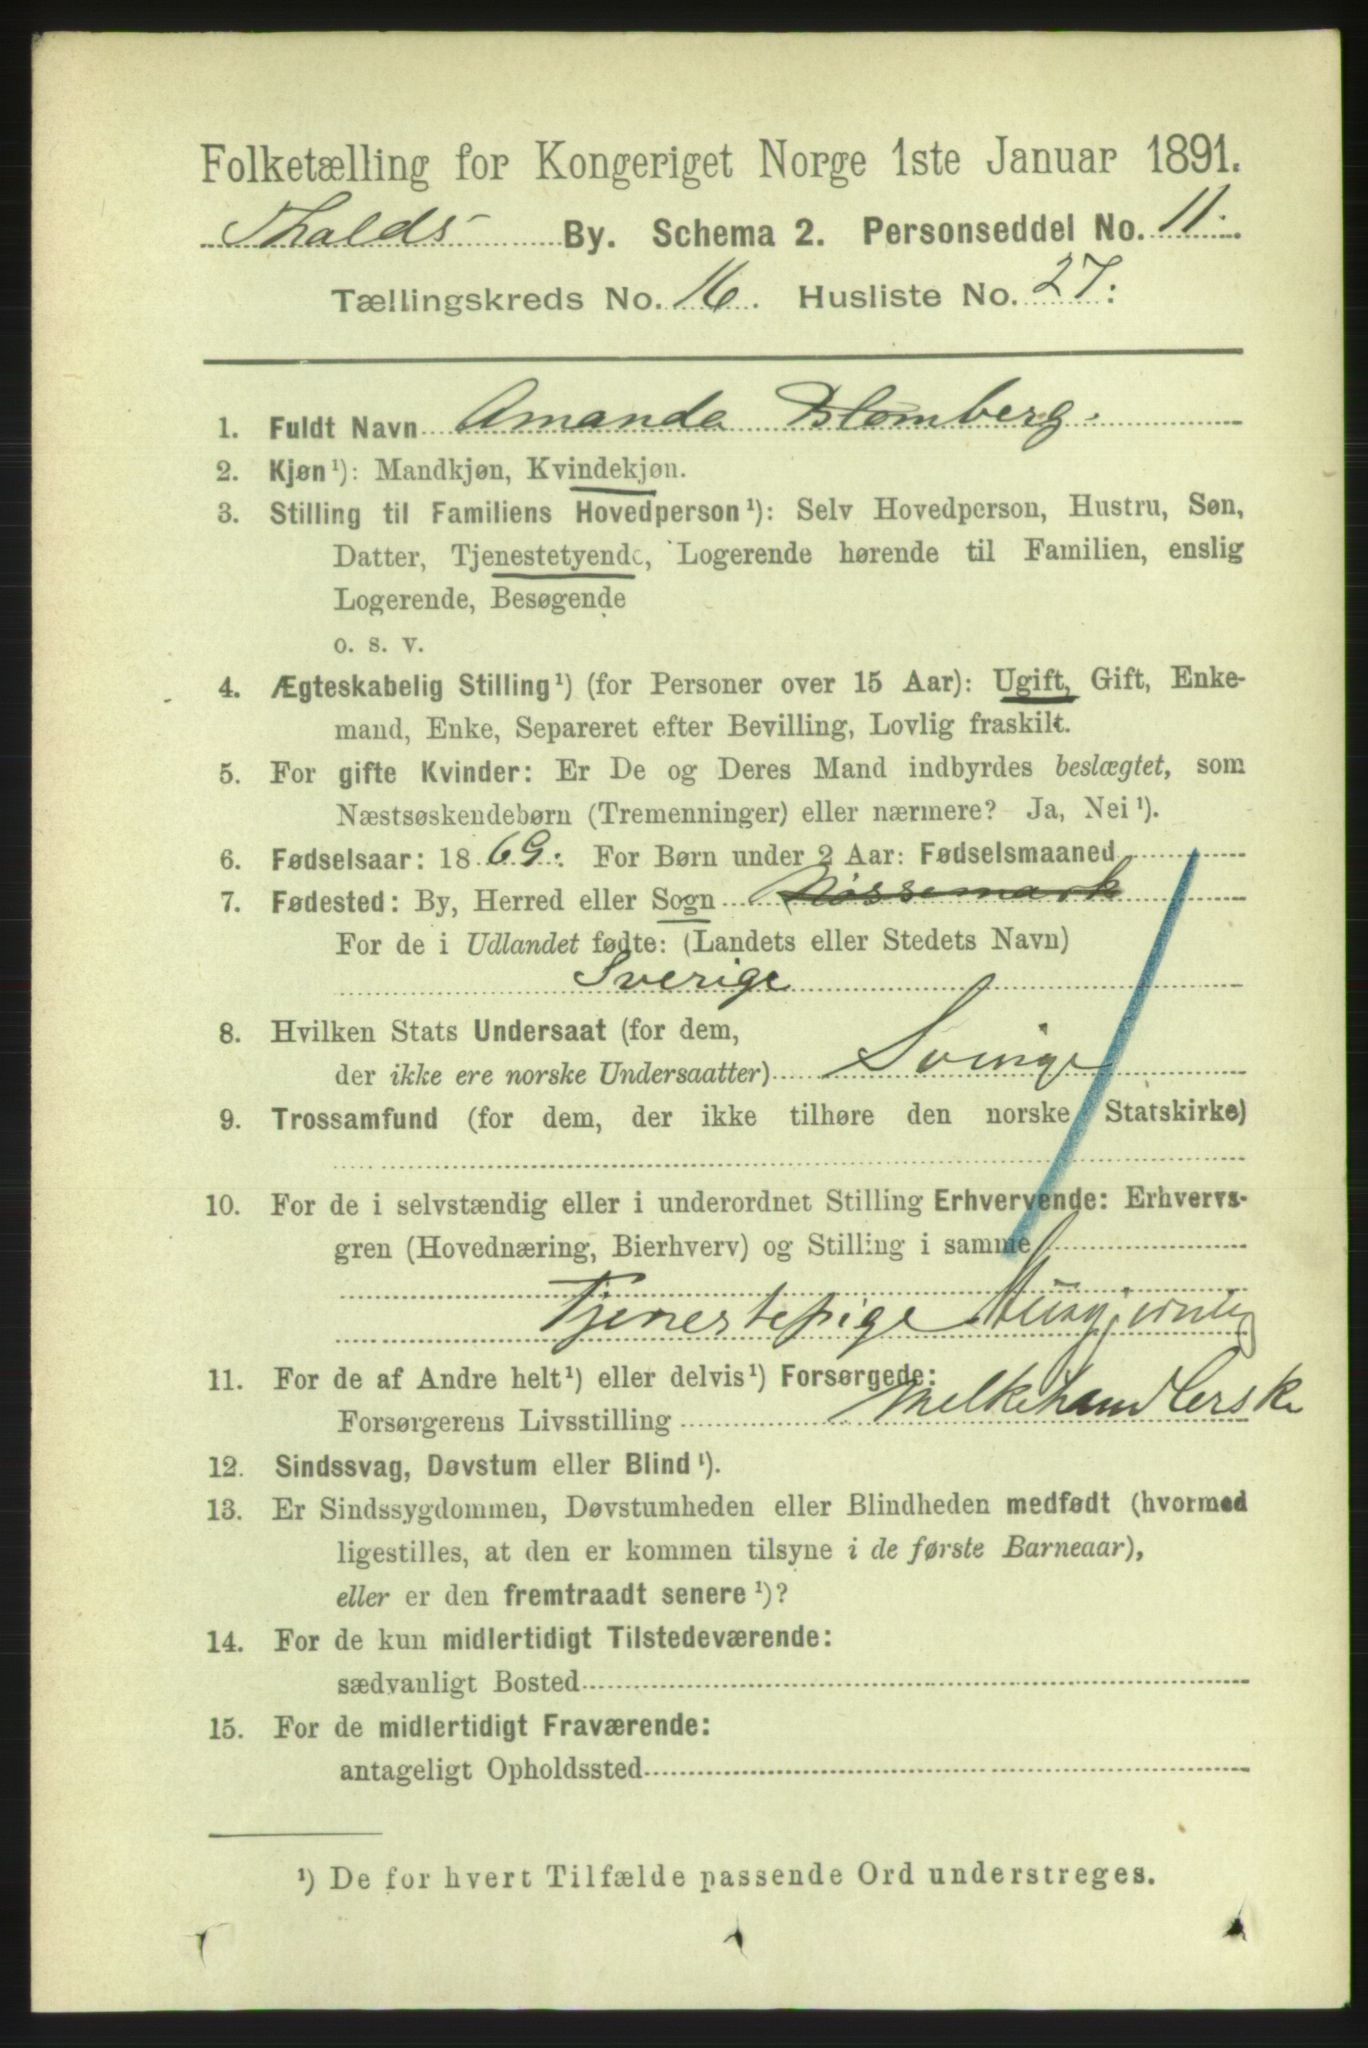 Folketælling for Kongeriget Norge 1ste Januar 1891.
Fhalds By. Schema 2. Personseddel No. 11.
Tællingskreds No. 16. Husliste No. 27.
1. Fuldt Navn Amanda Blomberg.
2. Kjøn¹): Mandkjøn, Kvindekjøn.
3. Stilling til Familiens Hovedperson¹): Selv Hovedperson, Hustru, Søn,
Datter, Tjenestetyende, Logerende hørende til Familien, enslig
Logerende, Besøgende
o. s. v.
4. Ægteskabelig Stilling¹) (for Personer over 15 Aar): Ugift, Gift, Enke-
mand, Enke, Separeret efter Bevilling, Lovlig fraskilt.
5. For gifte Kvinder: Er De og Deres Mand indbyrdes beslægtet, som
Næstsøskendebørn (Tremenninger) eller nærmere? Ja, Nei¹).
6. Fødselsaar: 1869. For Børn under 2 Aar: Fødselsmaaned
7. Fødested: By, Herred eller Sogn Nössemark
For de i Udlandet fødte: (Landets eller Stedets Navn)
Sverige
8. Hvilken Stats Undersaat (for dem,
der ikke ere norske Undersaatter) Sverige
9. Trossamfund (for dem, der ikke tilhøre den norske Statskirke)
10. For de i selvstændig eller i underordnet Stilling Erhvervende: Erhvervs-
gren (Hovednæring, Bierhverv) og Stilling i samme
Tjenestepige Husgjerning
11. For de af Andre helt¹) eller delvis¹) Forsørgede:
Forsørgerens Livsstilling Melkehandlerske
12. Sindssvag, Døvstum eller Blind¹).
13. Er Sindssygdommen, Døvstumheden eller Blindheden medfødt (hvormed
ligestilles, at den er kommen tilsyne i de første Barneaar),
eller er den fremtraadt senere¹)?
14. For de kun midlertidigt Tilstedeværende:
sædvanligt Bosted
15. For de midlertidigt Fraværende:
antageligt Opholdssted
¹) De for hvert Tilfælde passende Ord understreges.